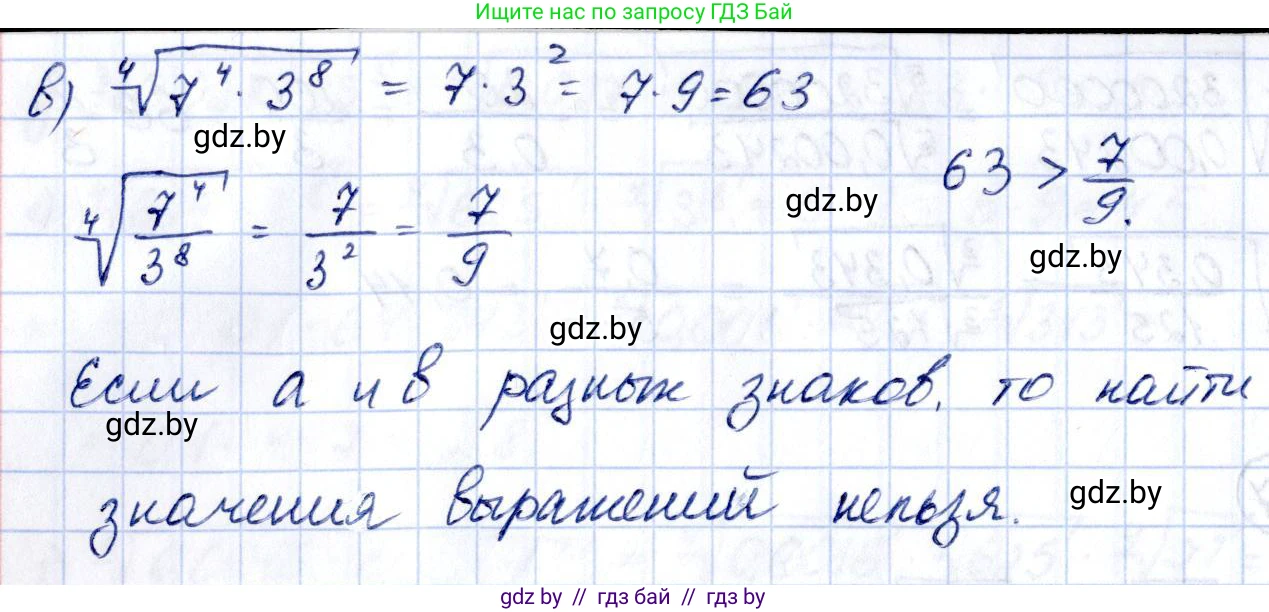 Ищите нас по запросу ГДЗ Бай
в) ∜(7⁴ · 3⁸) = 7 · 3² = 7 · 9 = 63
gdz.by
63 > 7/9.
gdz.by
∜(7⁴/3⁸) = 7/3² = 7/9
gdz.by
gdz.by
Если a и b разных знаков, то найти
gdz.by
значения выражений нельзя.
gdz.by
gdz.by // гдз бай // гдз by